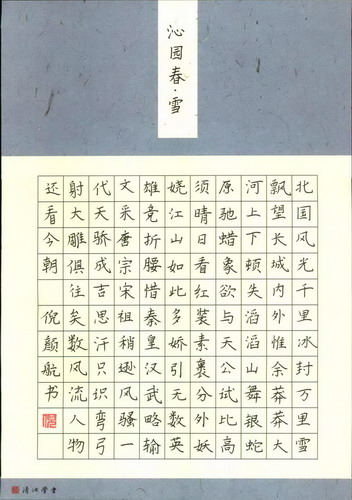 沁园春·雪
北国风光千里冰封万里雪
飘望长城内外惟余莽莽大
河上下顿失滔滔山舞银蛇
原驰蜡象欲与天公试比高
须晴日看红装素裹分外妖
娆江山如此多娇引无数英
雄竞折腰惜秦皇汉武略输
文采唐宗宋祖稍逊风骚一
代天骄成吉思汗只识弯弓
射大雕俱往矣数风流人物
还看今朝 倪颜航书